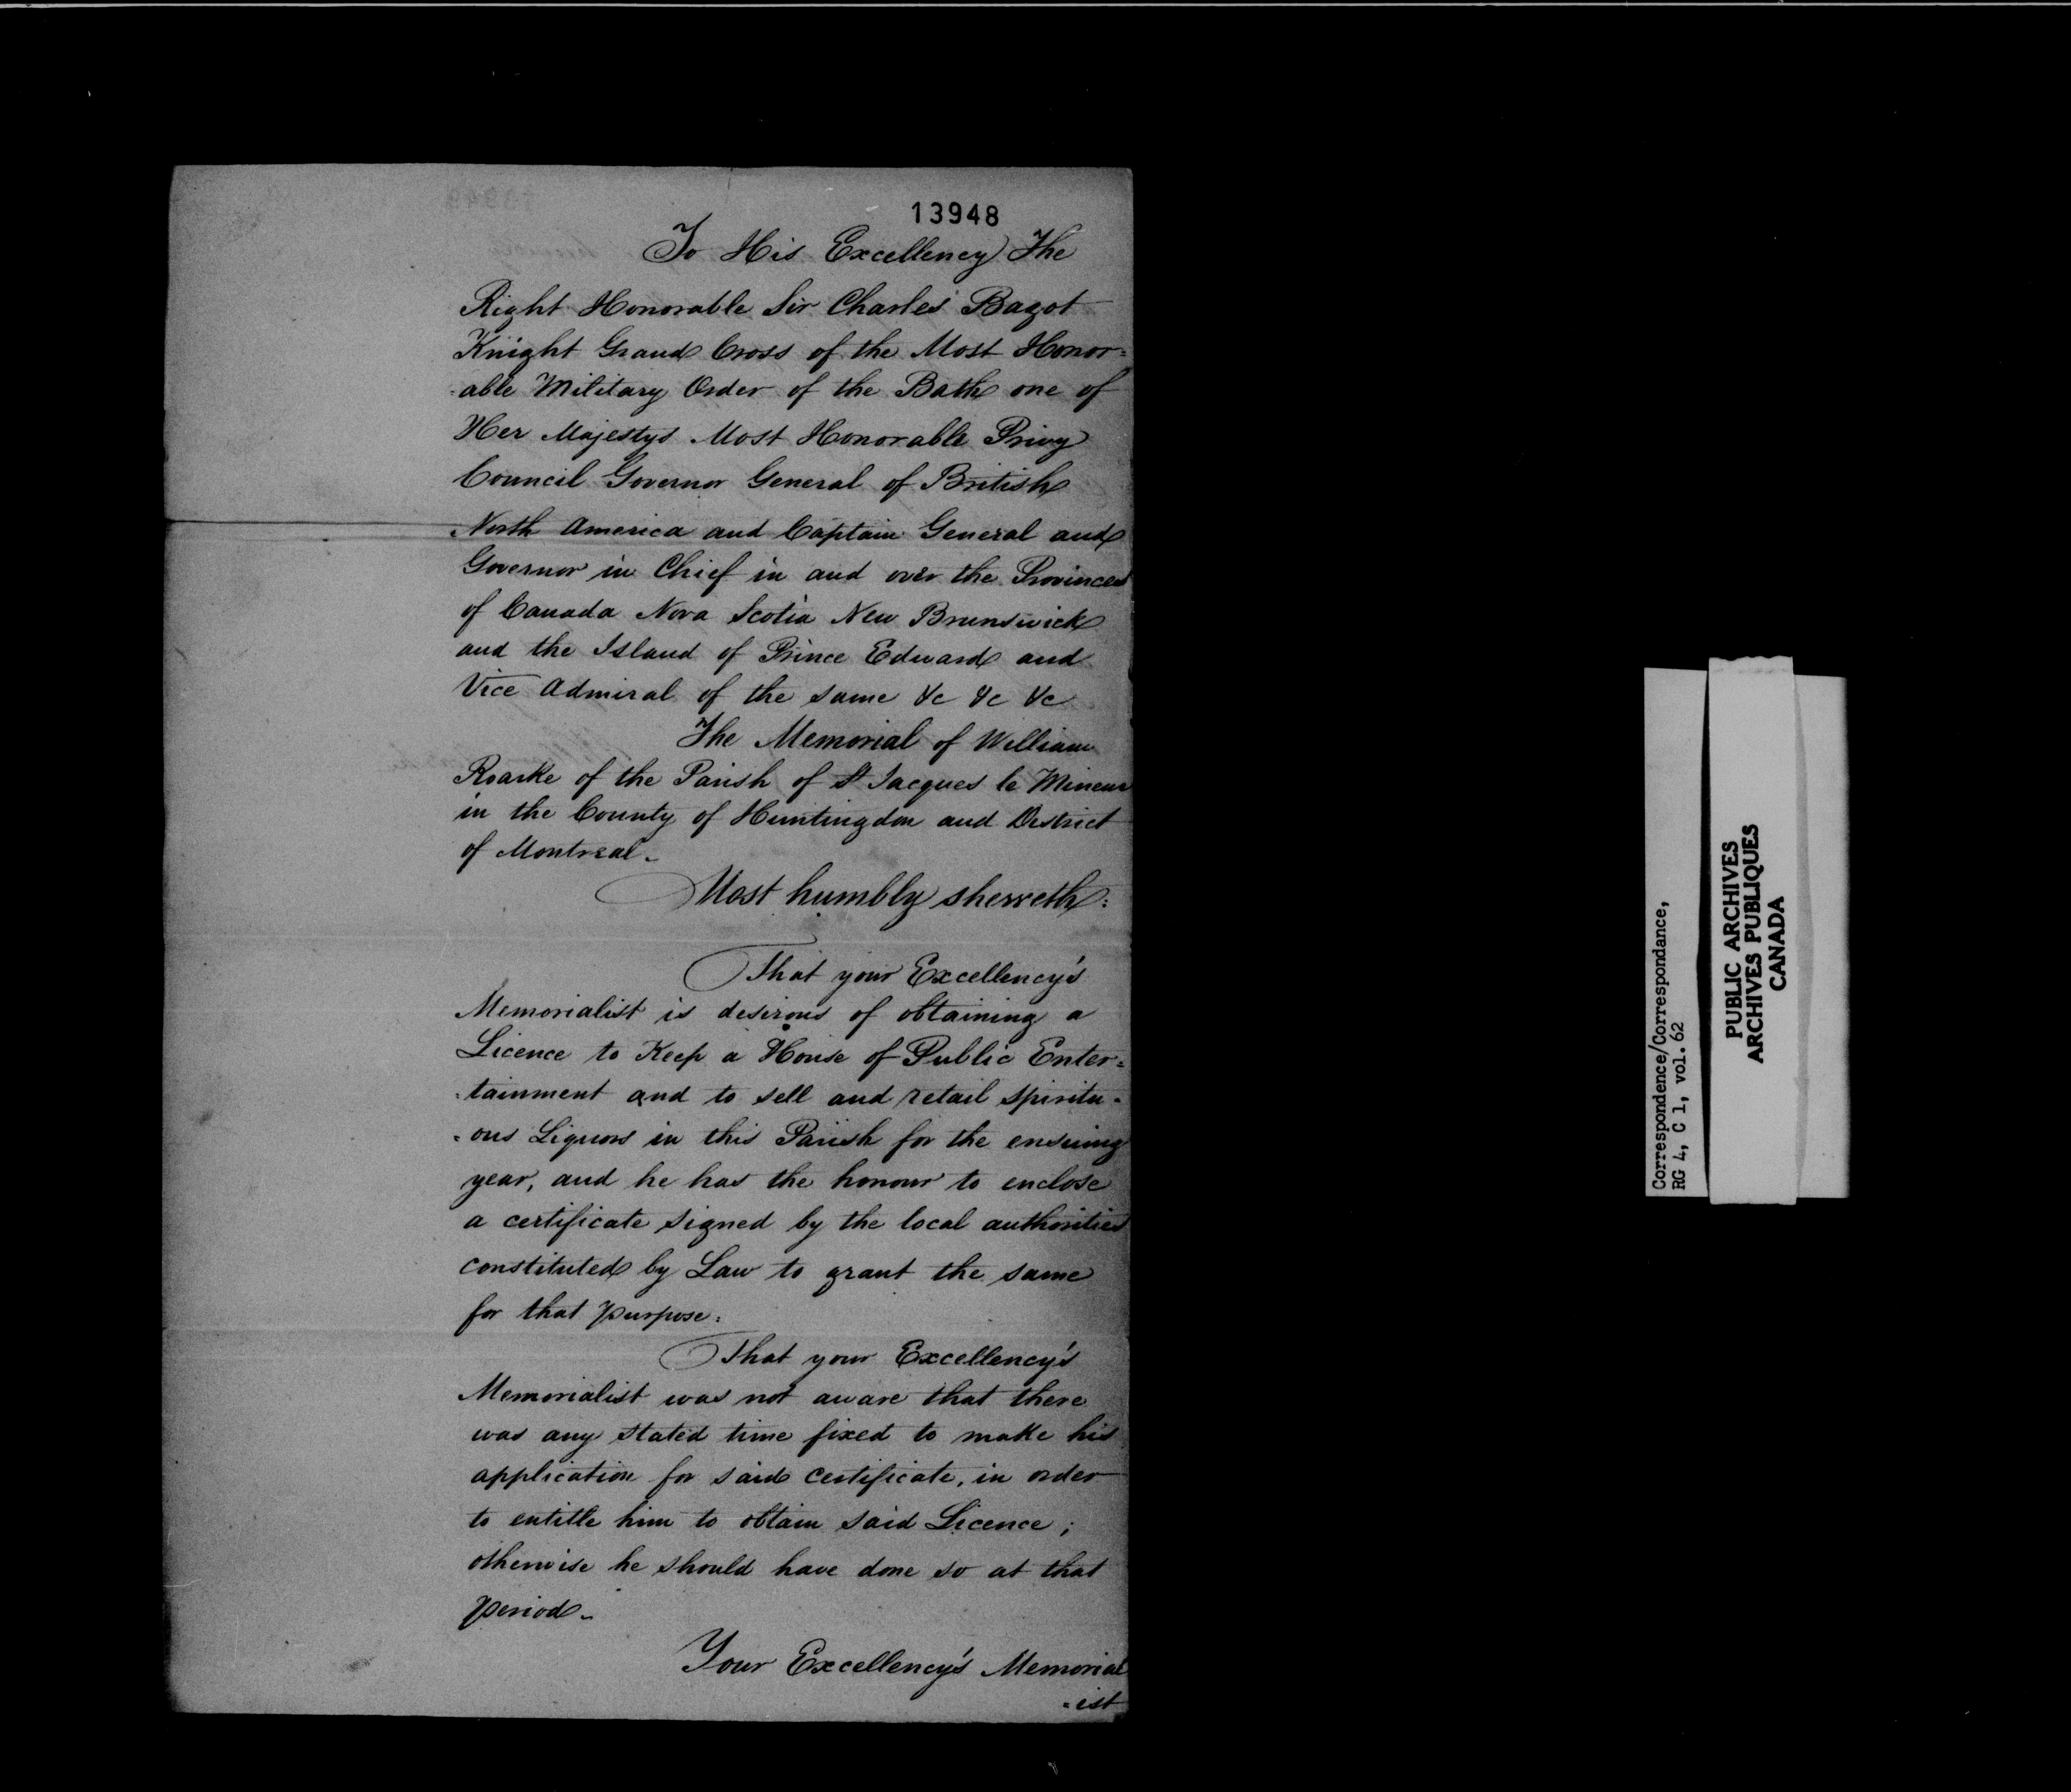 13948
To His Excellency The
Right Honorable Sir Charles Bagot
Knight Grand Cross of the Most Honor=
=able Military Order of the Bath one of
Her Majestys Most Honorable Privy
Council Governor General of British
North America and Captain General and
Governor in Chief in and over the Provinces
of Canada Nova Scotia New Brunswick
and the Island of Prince Edward and
Vice Admiral of the same &c &c &c
The Memorial of William
Roarke of the Parish of St Jacques le Mineur
in the County of Huntingdon and District
of Montreal.
Most humbly sheweth:
That your Excellency's
Memorialist is desirous of obtaining a
Licence to Keep a House of Public Enter=
=tainment and to sell and retail spiritu=
=ous Liquors in this Parish for the ensuing
year, and he has the honour to enclose
a certificate signed by the local authorities
constituted by Law to grant the same
for that purpose.
That your Excellency's
Memorialist was not aware that there
was any stated time fixed to make his
application for said certificate, in order
to entitle him to obtain said Licence;
otherwise he should have done so at that
period.
Your Excellency's Memorial
=ist
Correspondence/Correspondance,
RG 4, C 1, vol. 62
PUBLIC ARCHIVES
ARCHIVES PUBLIQUES
CANADA